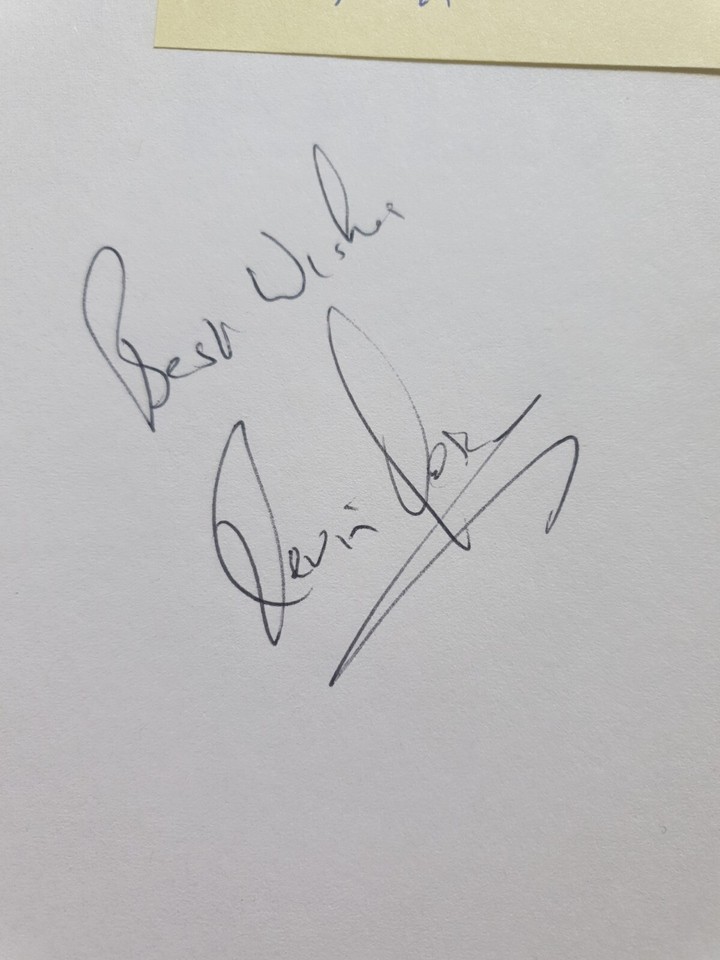 Best Wishes
Kevin